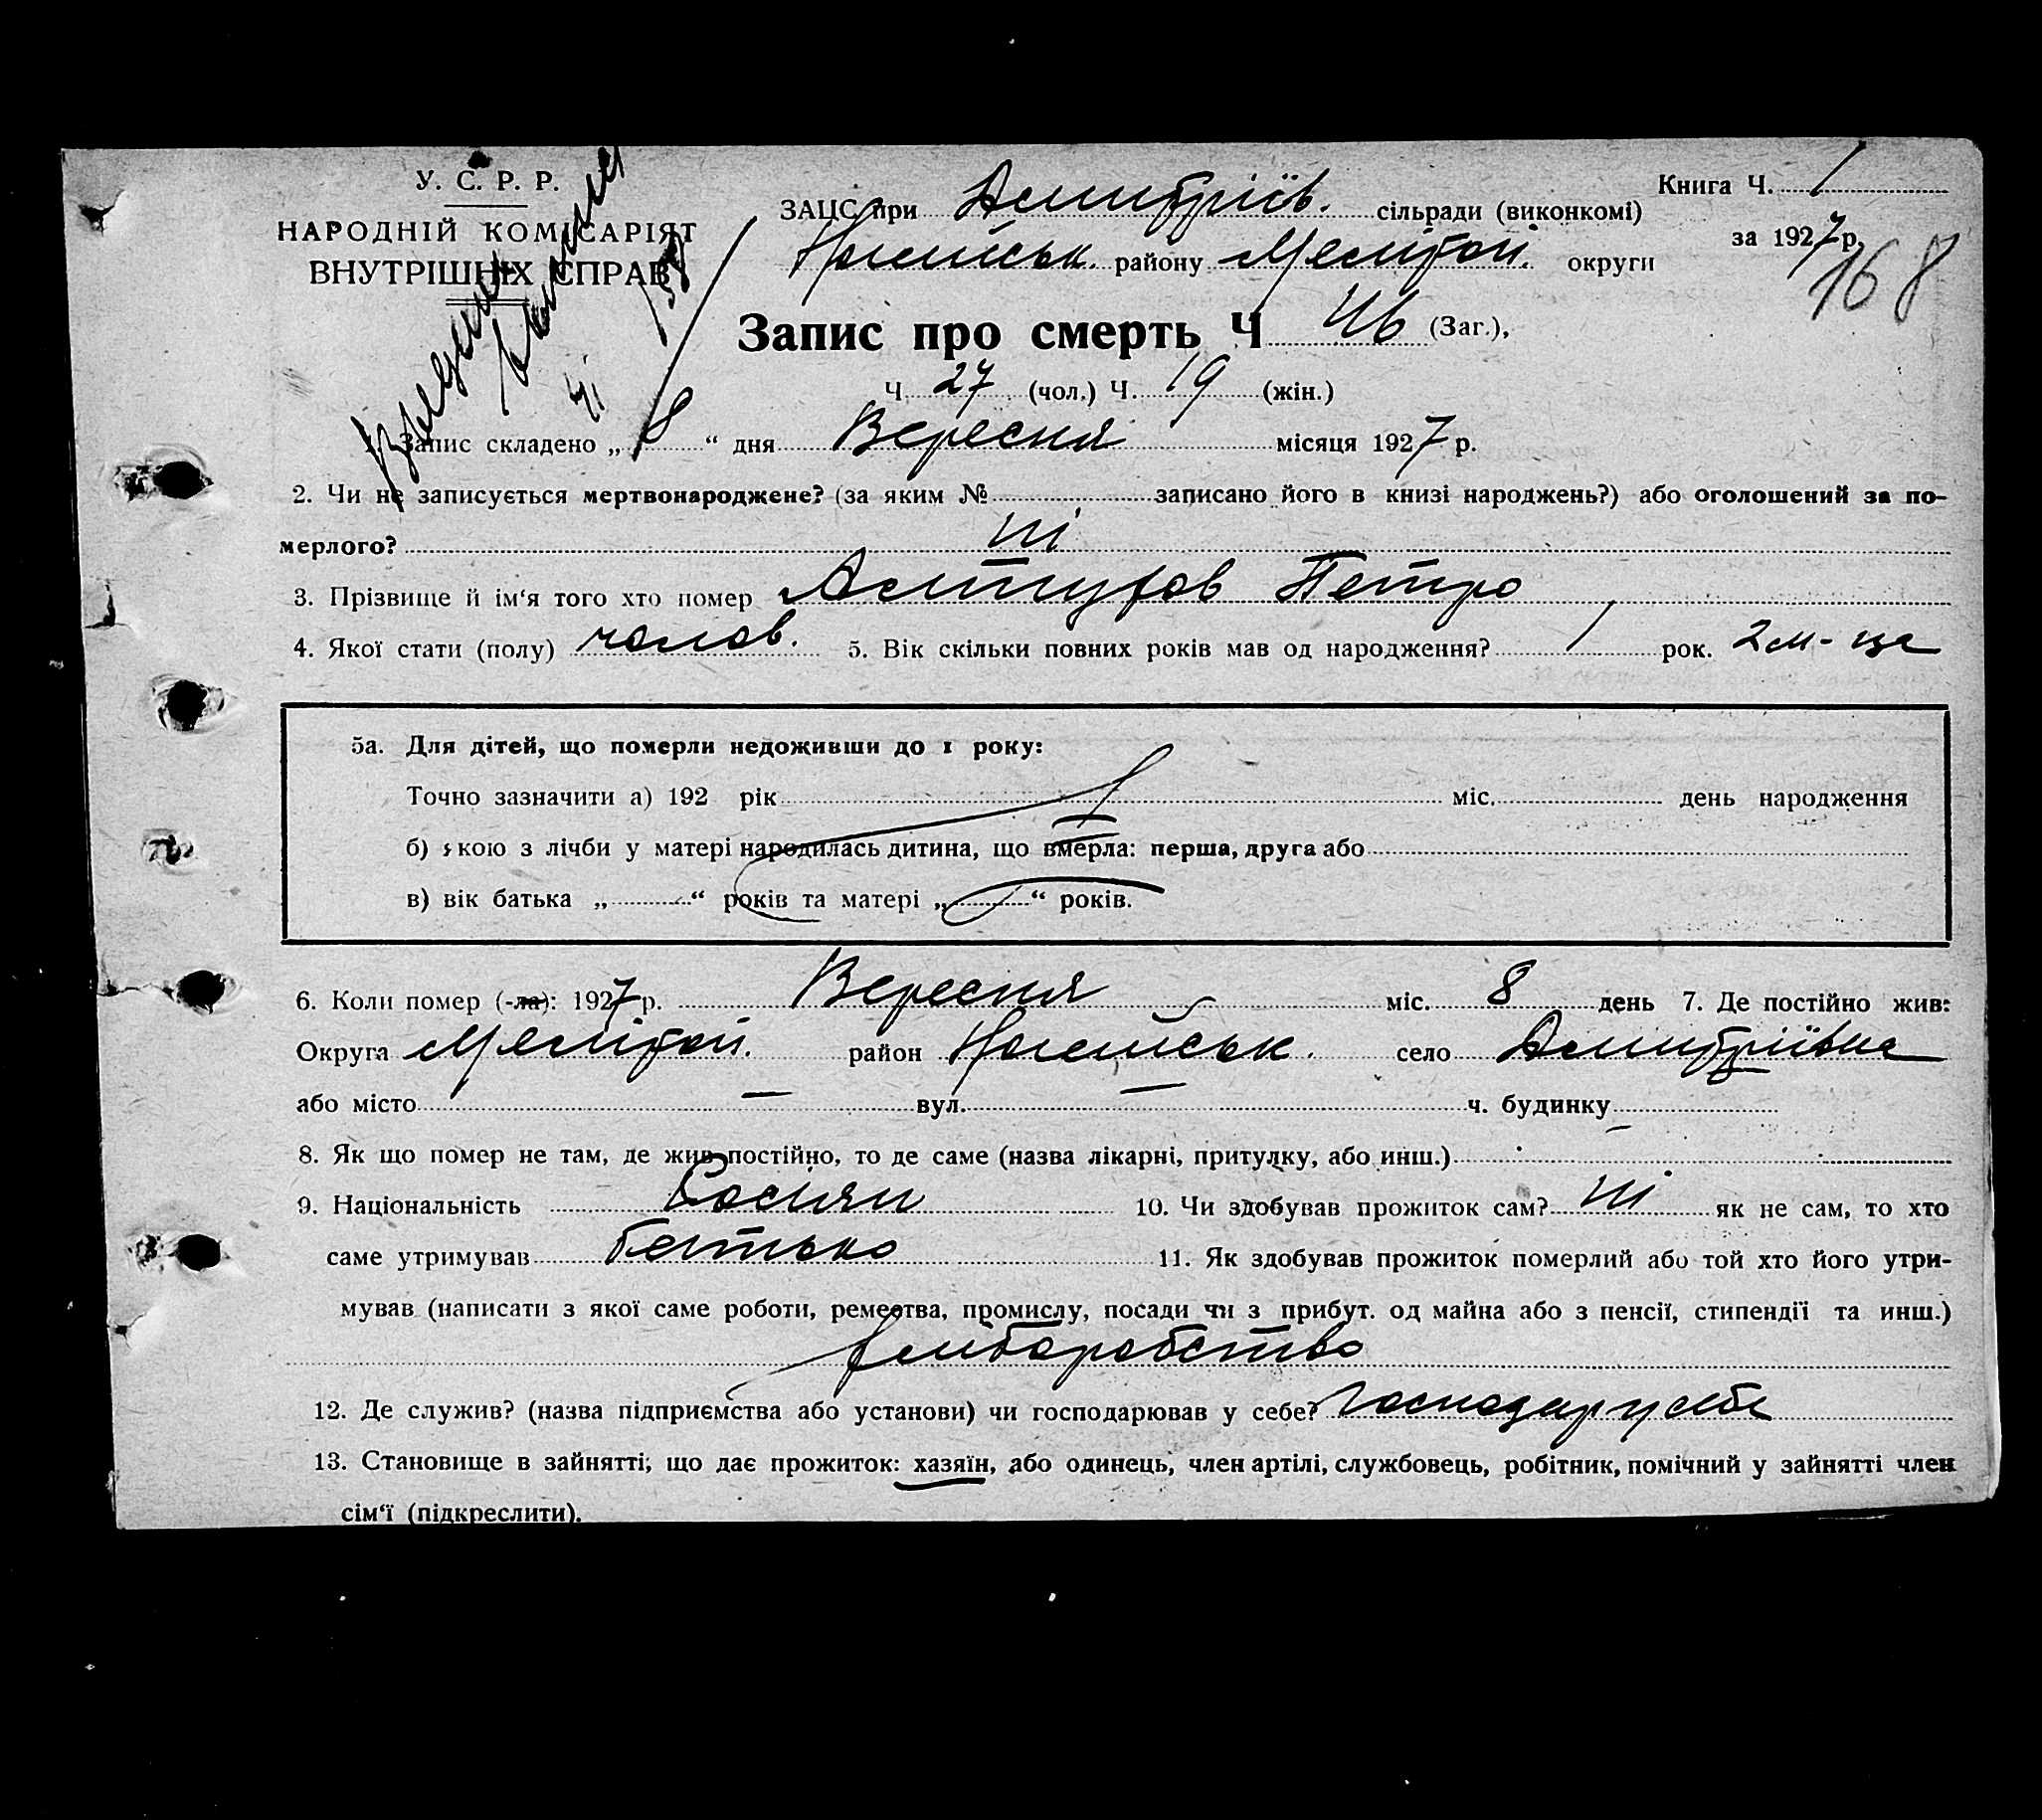 У. С. Р. Р.
НАРОДНІЙ КОМІСАРІЯТ
ВНУТРІШНІХ СПРАВ
Книга Ч. 1
ЗАЦС при Дмитріїв. сільради (виконкомі)
за 1927 р.
Ногайськ. району Мелітоп. округи
168
Запис про смерть Ч 46 (Заг.),
Ч 27 (чол.) Ч. 19 (жін.)
Запис складено „ 8 “ дня Вересня місяця 1927 р.
2. Чи не записується мертвонароджене? (за яким № записано його в книзі народжень?) або оголошений за по-
мерлого? ні
3. Прізвище й ім‘я того хто помер Петро
4. Якої стати (полу) чолов. 5. Вік скільки повних років мав од народження? 1 рок. 2 м-ця
5а. Для дітей, що померли недоживши до 1 року:
Точно зазначити а) 192 рік міс. день народження
б) якою з лічби у матері народилась дитина, що вмерла: перша, друга або
в) вік батька „ “ років та матері „ “ років.
6. Коли помер (-ла): 1927 р. Вересня міс. 8 день 7. Де постійно жив:
Округа Мелітоп. район Ногайськ. село Дмитріївка
або місто — вул. — ч. будинку —
8. Як що помер не там, де жив постійно, то де саме (назва лікарні, притулку, або инш.)
9. Національність Росіян 10. Чи здобував прожиток сам? ні як не сам, то хто
саме утримував батько 11. Як здобував прожиток померлий або той хто його утри-
мував (написати з якої саме роботи, ремества, промислу, посади чи з прибут. од майна або з пенсії, стипендії та инш.)
хліборобство
12. Де служив? (назва підприємства або установи) чи господарював у себе? господар у себе
13. Становище в зайнятті, що дає прожиток: хазяїн, або одинець, член артілі, службовець, робітник, помічний у зайнятті член
сім‘ї (підкреслити).